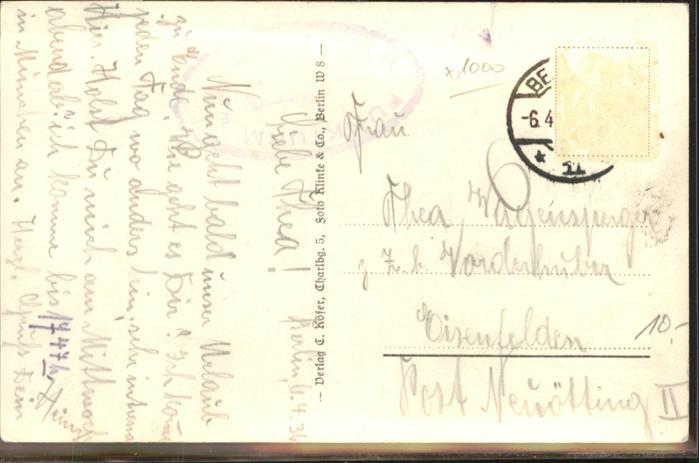 Berlin, 6.4.36
Liebe Thea!
Nun geht bald unser Urlaub
zu Ende. Wie geht es Dir?
jeden Tag wo anders hin, sehr
Hier. Holst Du mich am Mittwoch
abend ab; ich komme bis 17.47 h
in München an. Herzl. Grüß Dein
Verlag C. Köfer, Charlbg. 5, Foto Klinke & Co., Berlin W 8
x1000
BE
-6.4
Frau
Thea Wagensperger
z. Z. b. Vorderhuber
Eisenfelden
Post Neuötting II
10.-